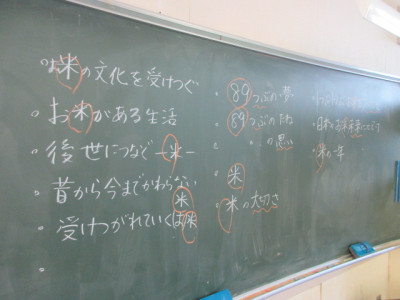 ・お米の文化を受けつぐ
・お米がある生活
・後世につなぐ―米―
・昔から今までかわらない米
・受けつがれていくお米
・
・89つぶの夢
・89つぶのたね
・の思い
・米
・米の大切さ
・日本のお米
・米の一年